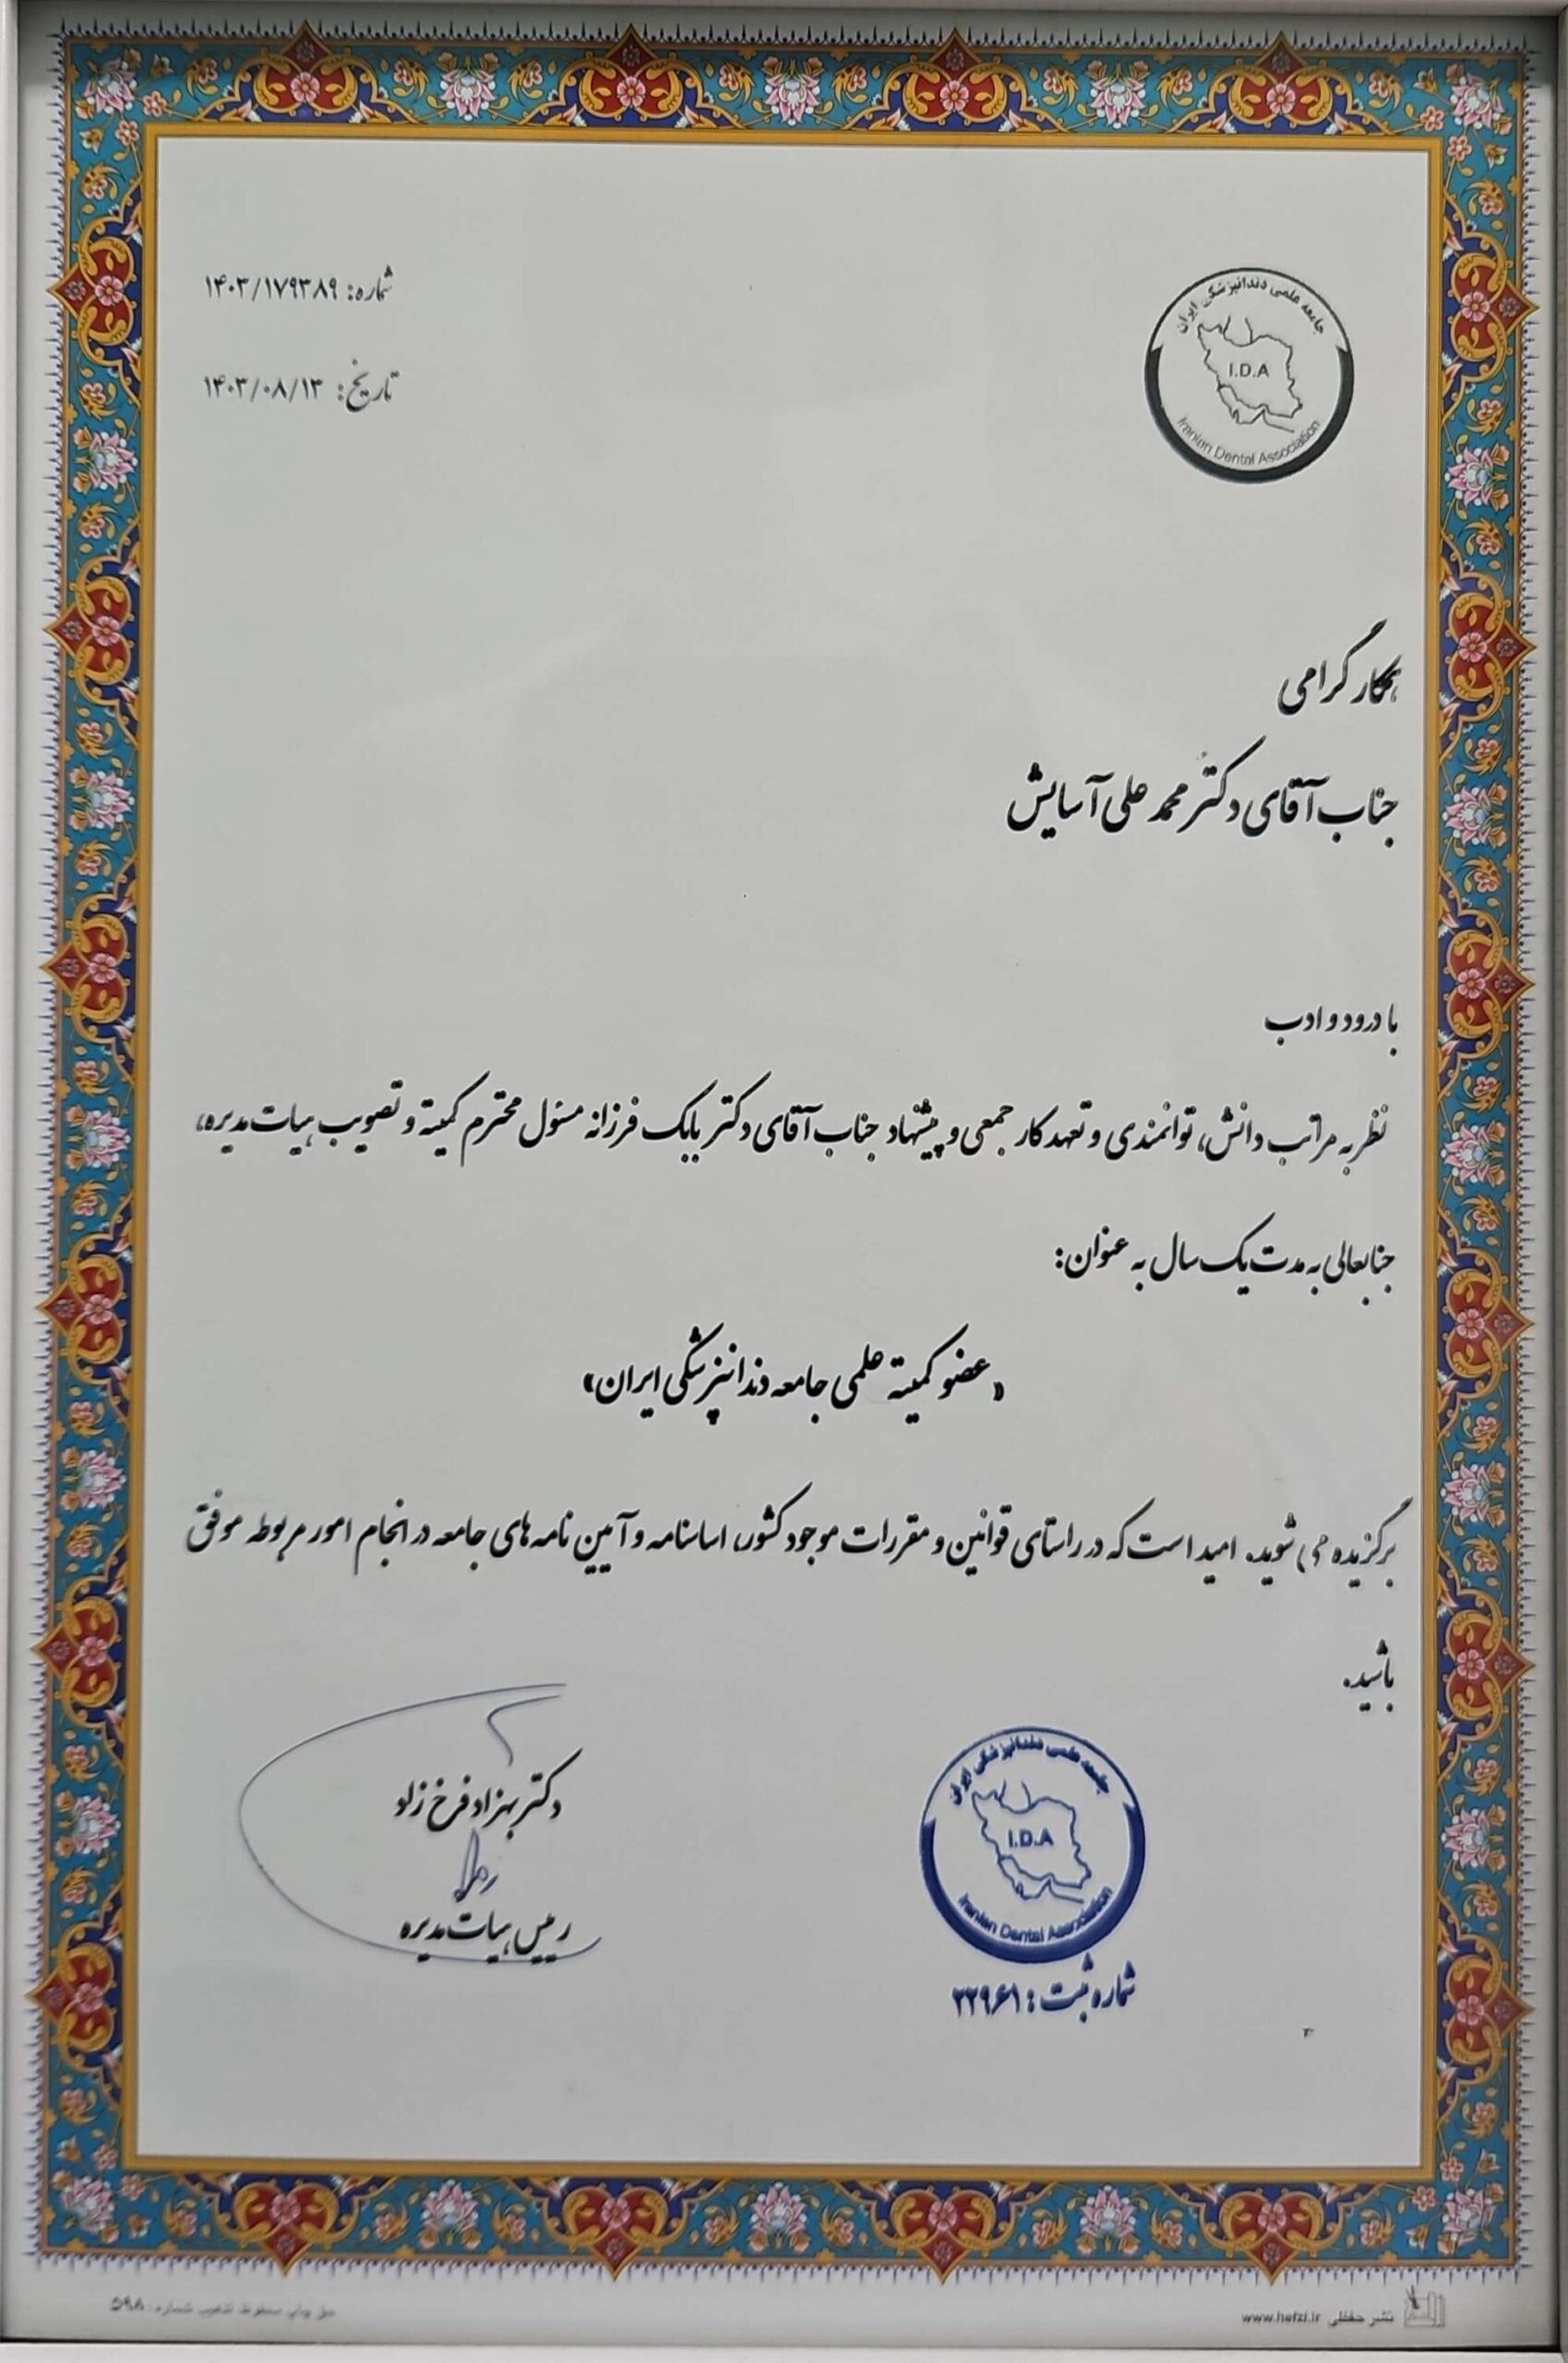 شماره: ۱۴۰۳/۱۷۹۳۸۹
تاریخ: ۱۴۰۳/۰۸/۱۳
جامعه علمی دندانپزشکی ایران
I.D.A
Iranian Dental Association
همکار گرامی
جناب آقای دکتر محمد علی آسایش
با درود و ادب
نظر به مراتب دانش، توانمندی و تعهد کار جمعی و پیشنهاد جناب آقای دکتر بابک فرزانه مسئول محترم کمیته و تصویب هیات مدیره،
جنابعالی به مدت یک سال به عنوان:
«عضو کمیته علمی جامعه دندانپزشکی ایران»
برگزیده می شوید. امید است که در راستای قوانین و مقررات موجود کشور، اساسنامه و آیین نامه های جامعه در انجام امور مربوطه موفق
باشید.
دکتر بهزاد فرخ زاد
رییس هیات مدیره
جامعه علمی دندانپزشکی ایران
I.D.A
Iranian Dental Association
شماره ثبت: ۲۲۹۶۱
نشر حفظی www.hefzi.ir
حق چاپ محفوظ تذهیب شماره: ۵۹۸